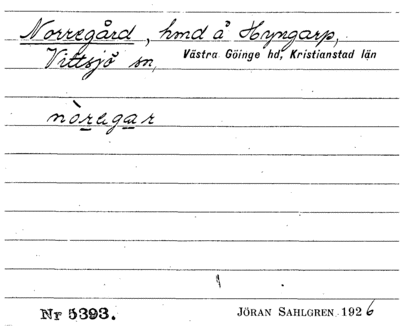 Norregård, hmd å Hyngarp,
Vittsjö sn, Västra Göinge hd, Kristianstad län
nòregar
Nr 5393. JÖRAN SAHLGREN 1926